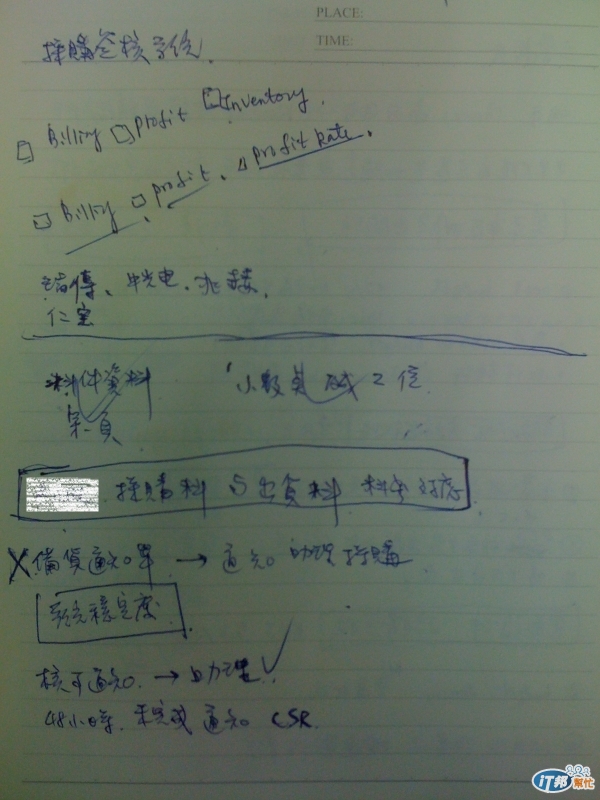 PLACE:
TIME:
採購簽核系統.
□ Billing □ Profit □ Inventory.
□ Billing □ profit. △ profit Rate.
中光电、兆
仁宝
料件資料 小數點 2位
單頁
採購料 与出貨料 料号对應
X 備貨通知單 → 通知助理採購
系統穩定度.
核可通知. → 助理 ✓
48小時. 未完成 通知 CSR.
iT邦幫忙